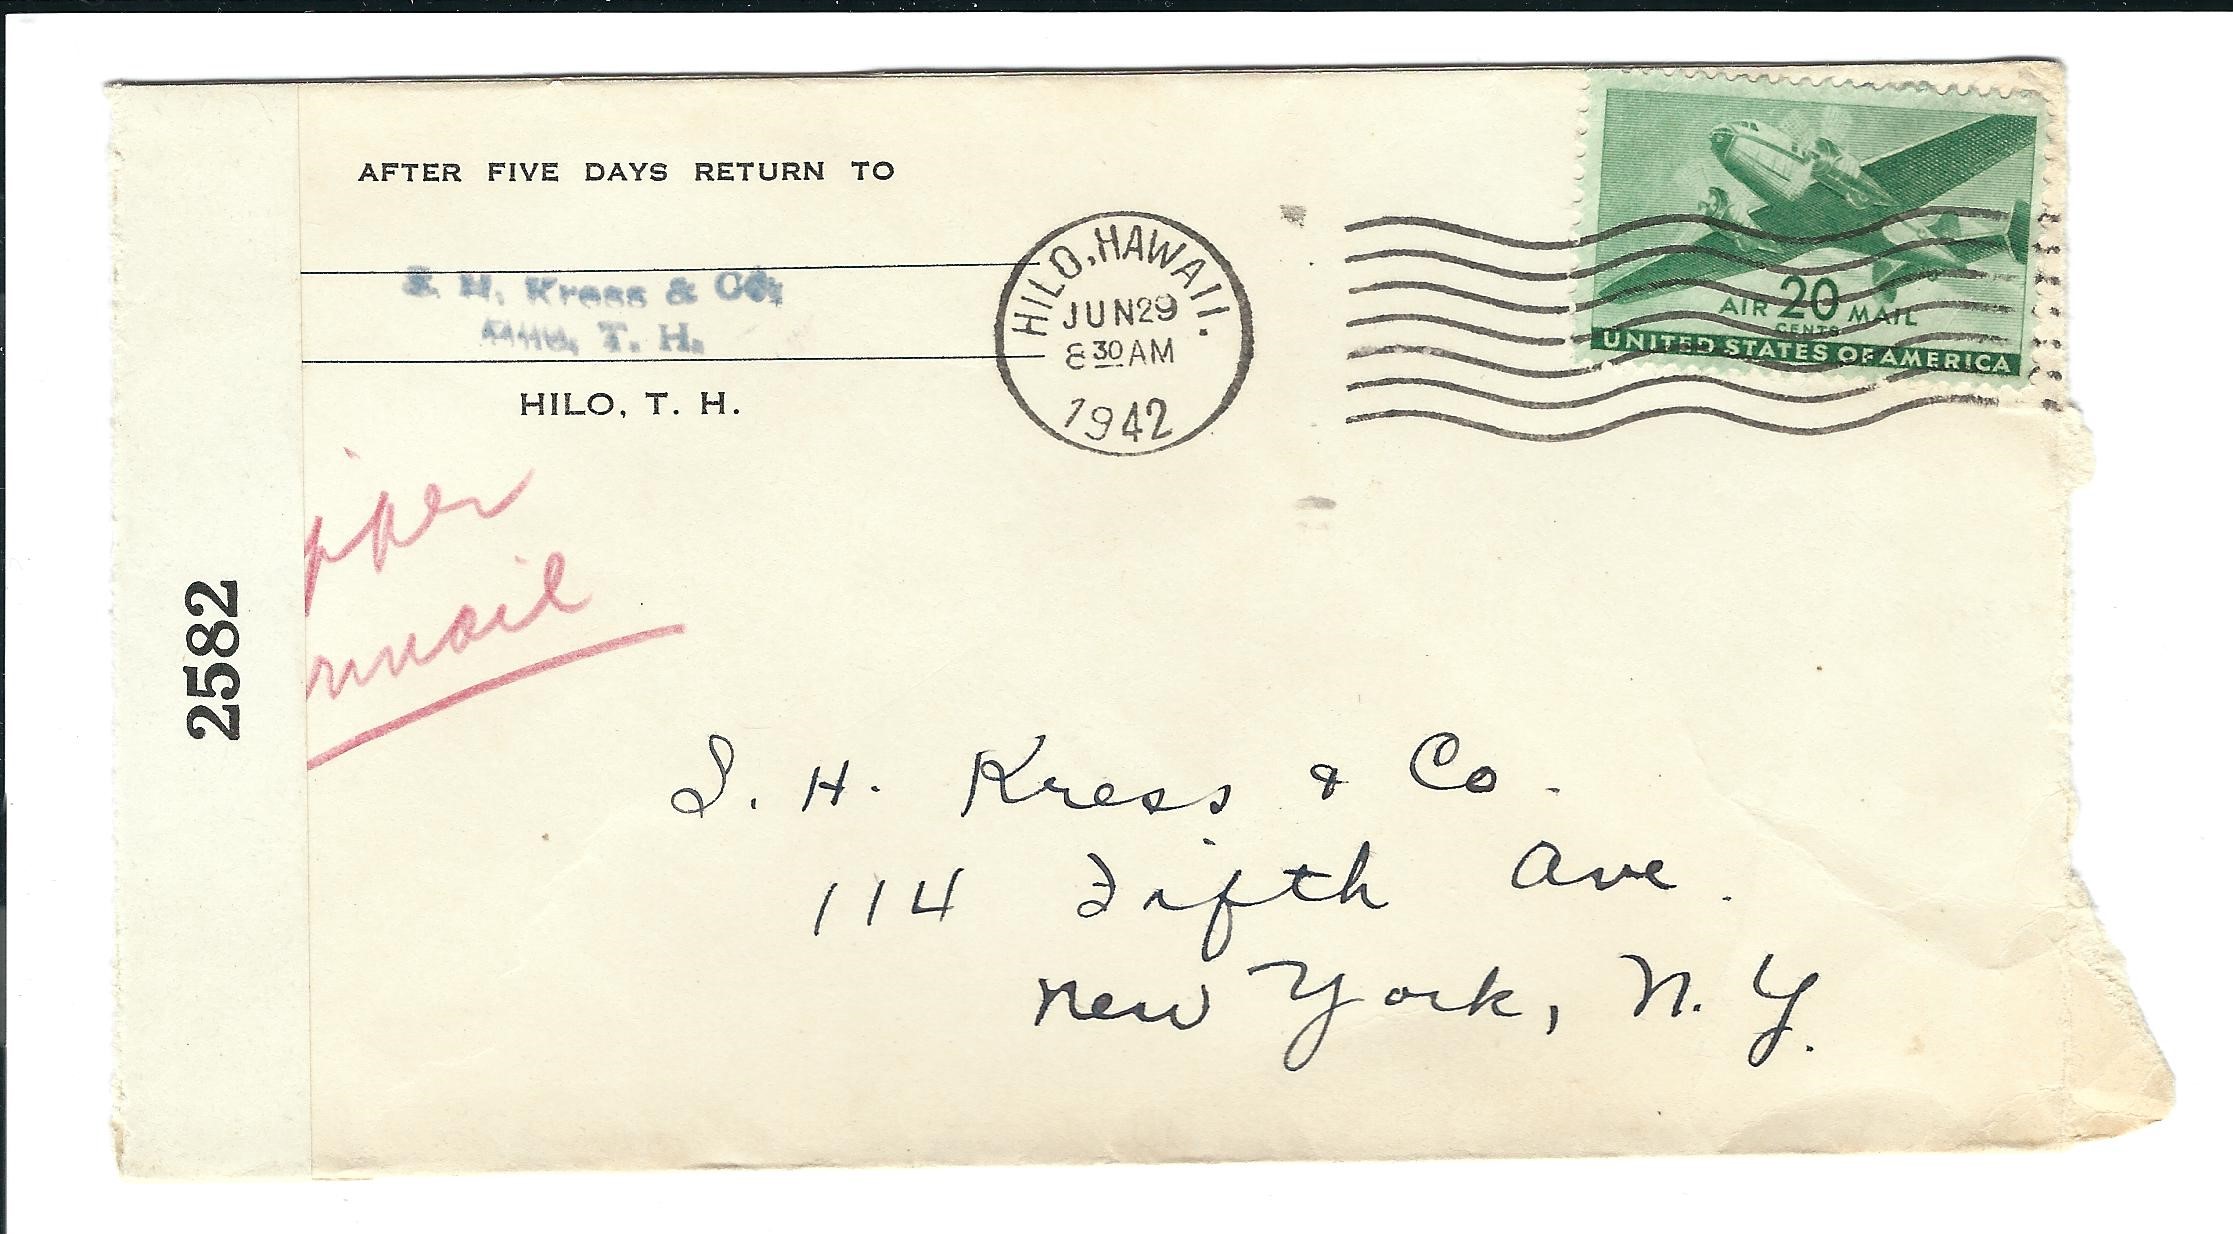 AFTER FIVE DAYS RETURN TO
S. H. Kress & Co.
Hilo, T. H.
HILO, T. H.
HILO, HAWAII.
JUN 29
8 30 AM
1942
AIR 20 MAIL
CENTS
UNITED STATES OF AMERICA
pper
rmail
2582
S. H. Kress & Co.
114 Fifth Ave.
New York, N. Y.